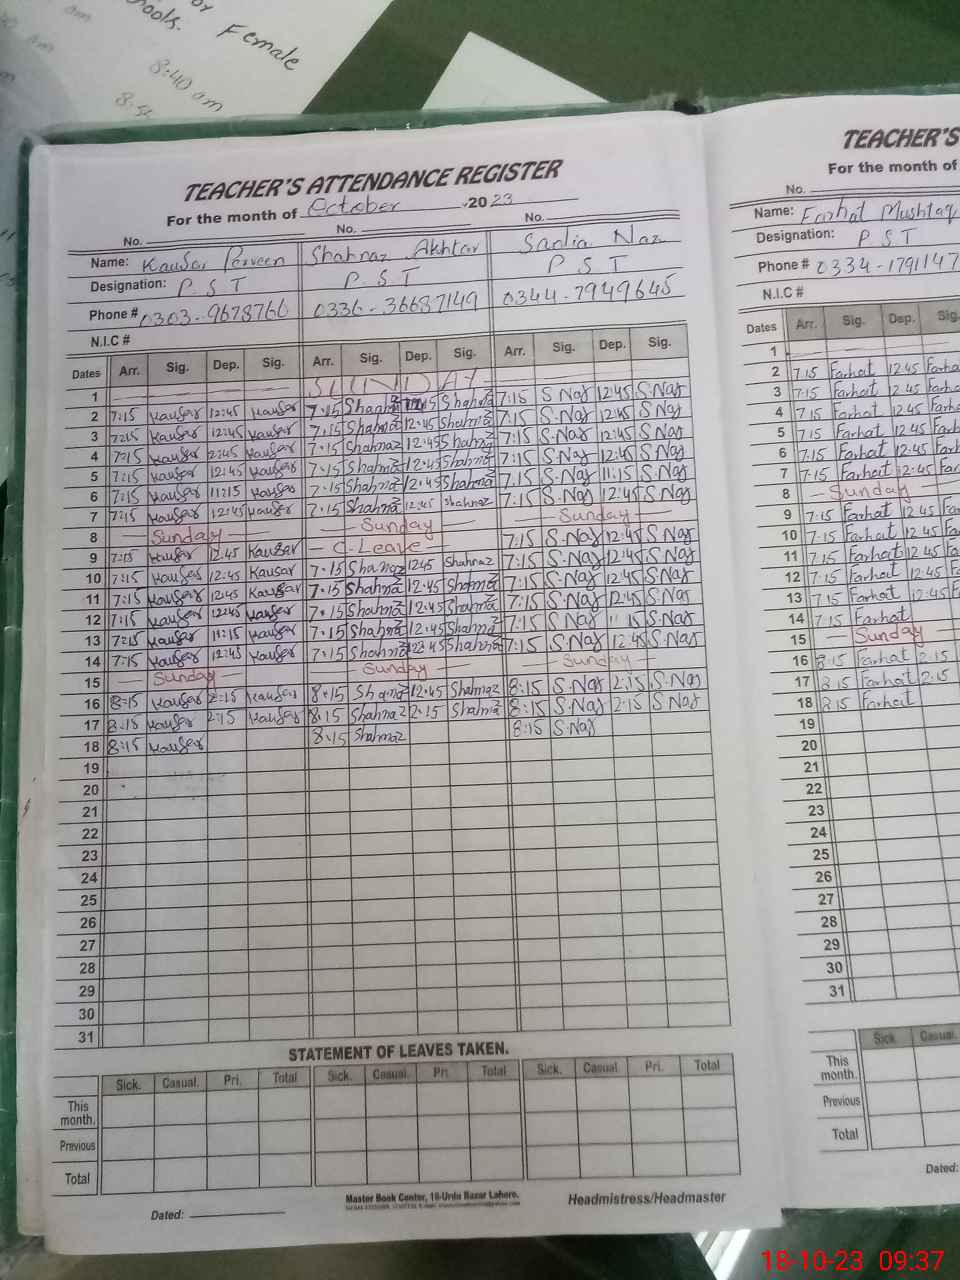 Female
8:40 am
TEACHER'S ATTENDANCE REGISTER
For the month of October 2023
No. No. No.
Name: Kausar Perveen Shahnaz Akhtar Sadia Naz
Designation: P S T P S T P S T
Phone # 0303-9678766 0336-36687149 0344-7949645
N.I.C #
Dates Arr. Sig. Dep. Sig. Arr. Sig. Dep. Sig. Arr. Sig. Dep. Sig.
1 SUNDAY
2 7:15 Kausar 12:45 Kausar 7:15 Shahnaz 12:45 Shahnaz 7:15 S.Naz 12:45 S.Naz
3 7:15 Kausar 12:45 Kausar 7:15 Shahnaz 12:45 Shahnaz 7:15 S.Naz 12:45 S.Naz
4 7:15 Kausar 12:45 Kausar 7:15 Shahnaz 12:45 Shahnaz 7:15 S.Naz 12:45 S.Naz
5 7:15 Kausar 12:45 Kausar 7:15 Shahnaz 12:45 Shahnaz 7:15 S.Naz 12:45 S.Naz
6 7:15 Kausar 11:15 Kausar 7:15 Shahnaz Shahnaz 7:15 S.Naz 11:15 S.Naz
7 7:15 Kausar 12:45 Kausar 7:15 Shahnaz 12:45 Shahnaz 7:15 S.Naz 12:45 S.Naz
8 Sunday Sunday Sunday
9 7:15 Kausar 12:45 Kausar C-Leave 7:15 S.Naz 12:45 S.Naz
10 7:15 Kausar 12:45 Kausar 7:15 Shahnaz 12:45 Shahnaz 7:15 S.Naz 12:45 S.Naz
11 7:15 Kausar 12:45 Kausar 7:15 Shahnaz 12:45 Shahnaz 7:15 S.Naz 12:45 S.Naz
12 7:15 Kausar 12:45 Kausar 7:15 Shahnaz 12:45 Shahnaz 7:15 S.Naz 12:45 S.Naz
13 7:15 Kausar 11:15 Kausar 7:15 Shahnaz 12:45 Shahnaz 7:15 S.Naz 11:15 S.Naz
14 7:15 Kausar 12:45 Kausar 7:15 Shahnaz Shahnaz 7:15 S.Naz 12:45 S.Naz
15 Sunday Sunday Sunday
16 8:15 Kausar 2:15 Kausar 8:15 Shahnaz 12:45 Shahnaz 8:15 S.Naz 2:15 S.Naz
17 8:15 Kausar 2:15 Kausar 8:15 Shahnaz 2:15 Shahnaz 8:15 S.Naz 2:15 S.Naz
18 8:15 Kausar 8:15 Shahnaz 8:15 S.Naz
19
20
21
22
23
24
25
26
27
28
29
30
31
STATEMENT OF LEAVES TAKEN.
Sick. Casual. Pri. Total Sick. Casual. Pri. Total Sick. Casual Pri. Total
This month.
Previous
Total
Master Book Center, 16-Urdu Bazar Lahore.
Headmistress/Headmaster
Dated:
TEACHER'S
For the month of
No.
Name: Farhat Mushtaq
Designation: P S T
Phone # 0334-1791147
N.I.C #
Dates Arr. Sig. Dep. Sig.
1
2 7:15 Farhat 12:45 Farha
3 7:15 Farhat 12:45 Farha
4 7:15 Farhat 12:45 Farh
5 7:15 Farhat 12:45 Farh
6 7:15 Farhat 12:45 Far
7 7:15 Farhat 12:45 Far
8 Sunday
9 7:15 Farhat 12:45 Fa
10 7:15 Farhat 12:45 Fa
11 7:15 Farhat 12:45 Fa
12 7:15 Farhat 12:45 F
13 7:15 Farhat 12:45 F
14 7:15 Farhat
15 Sunday
16 8:15 Farhat 2:15
17 8:15 Farhat 2:15
18 8:15 Farhat
19
20
21
22
23
24
25
26
27
28
29
30
31
Sick. Casual.
This month.
Previous
Total
Dated:
18-10-23 09:37